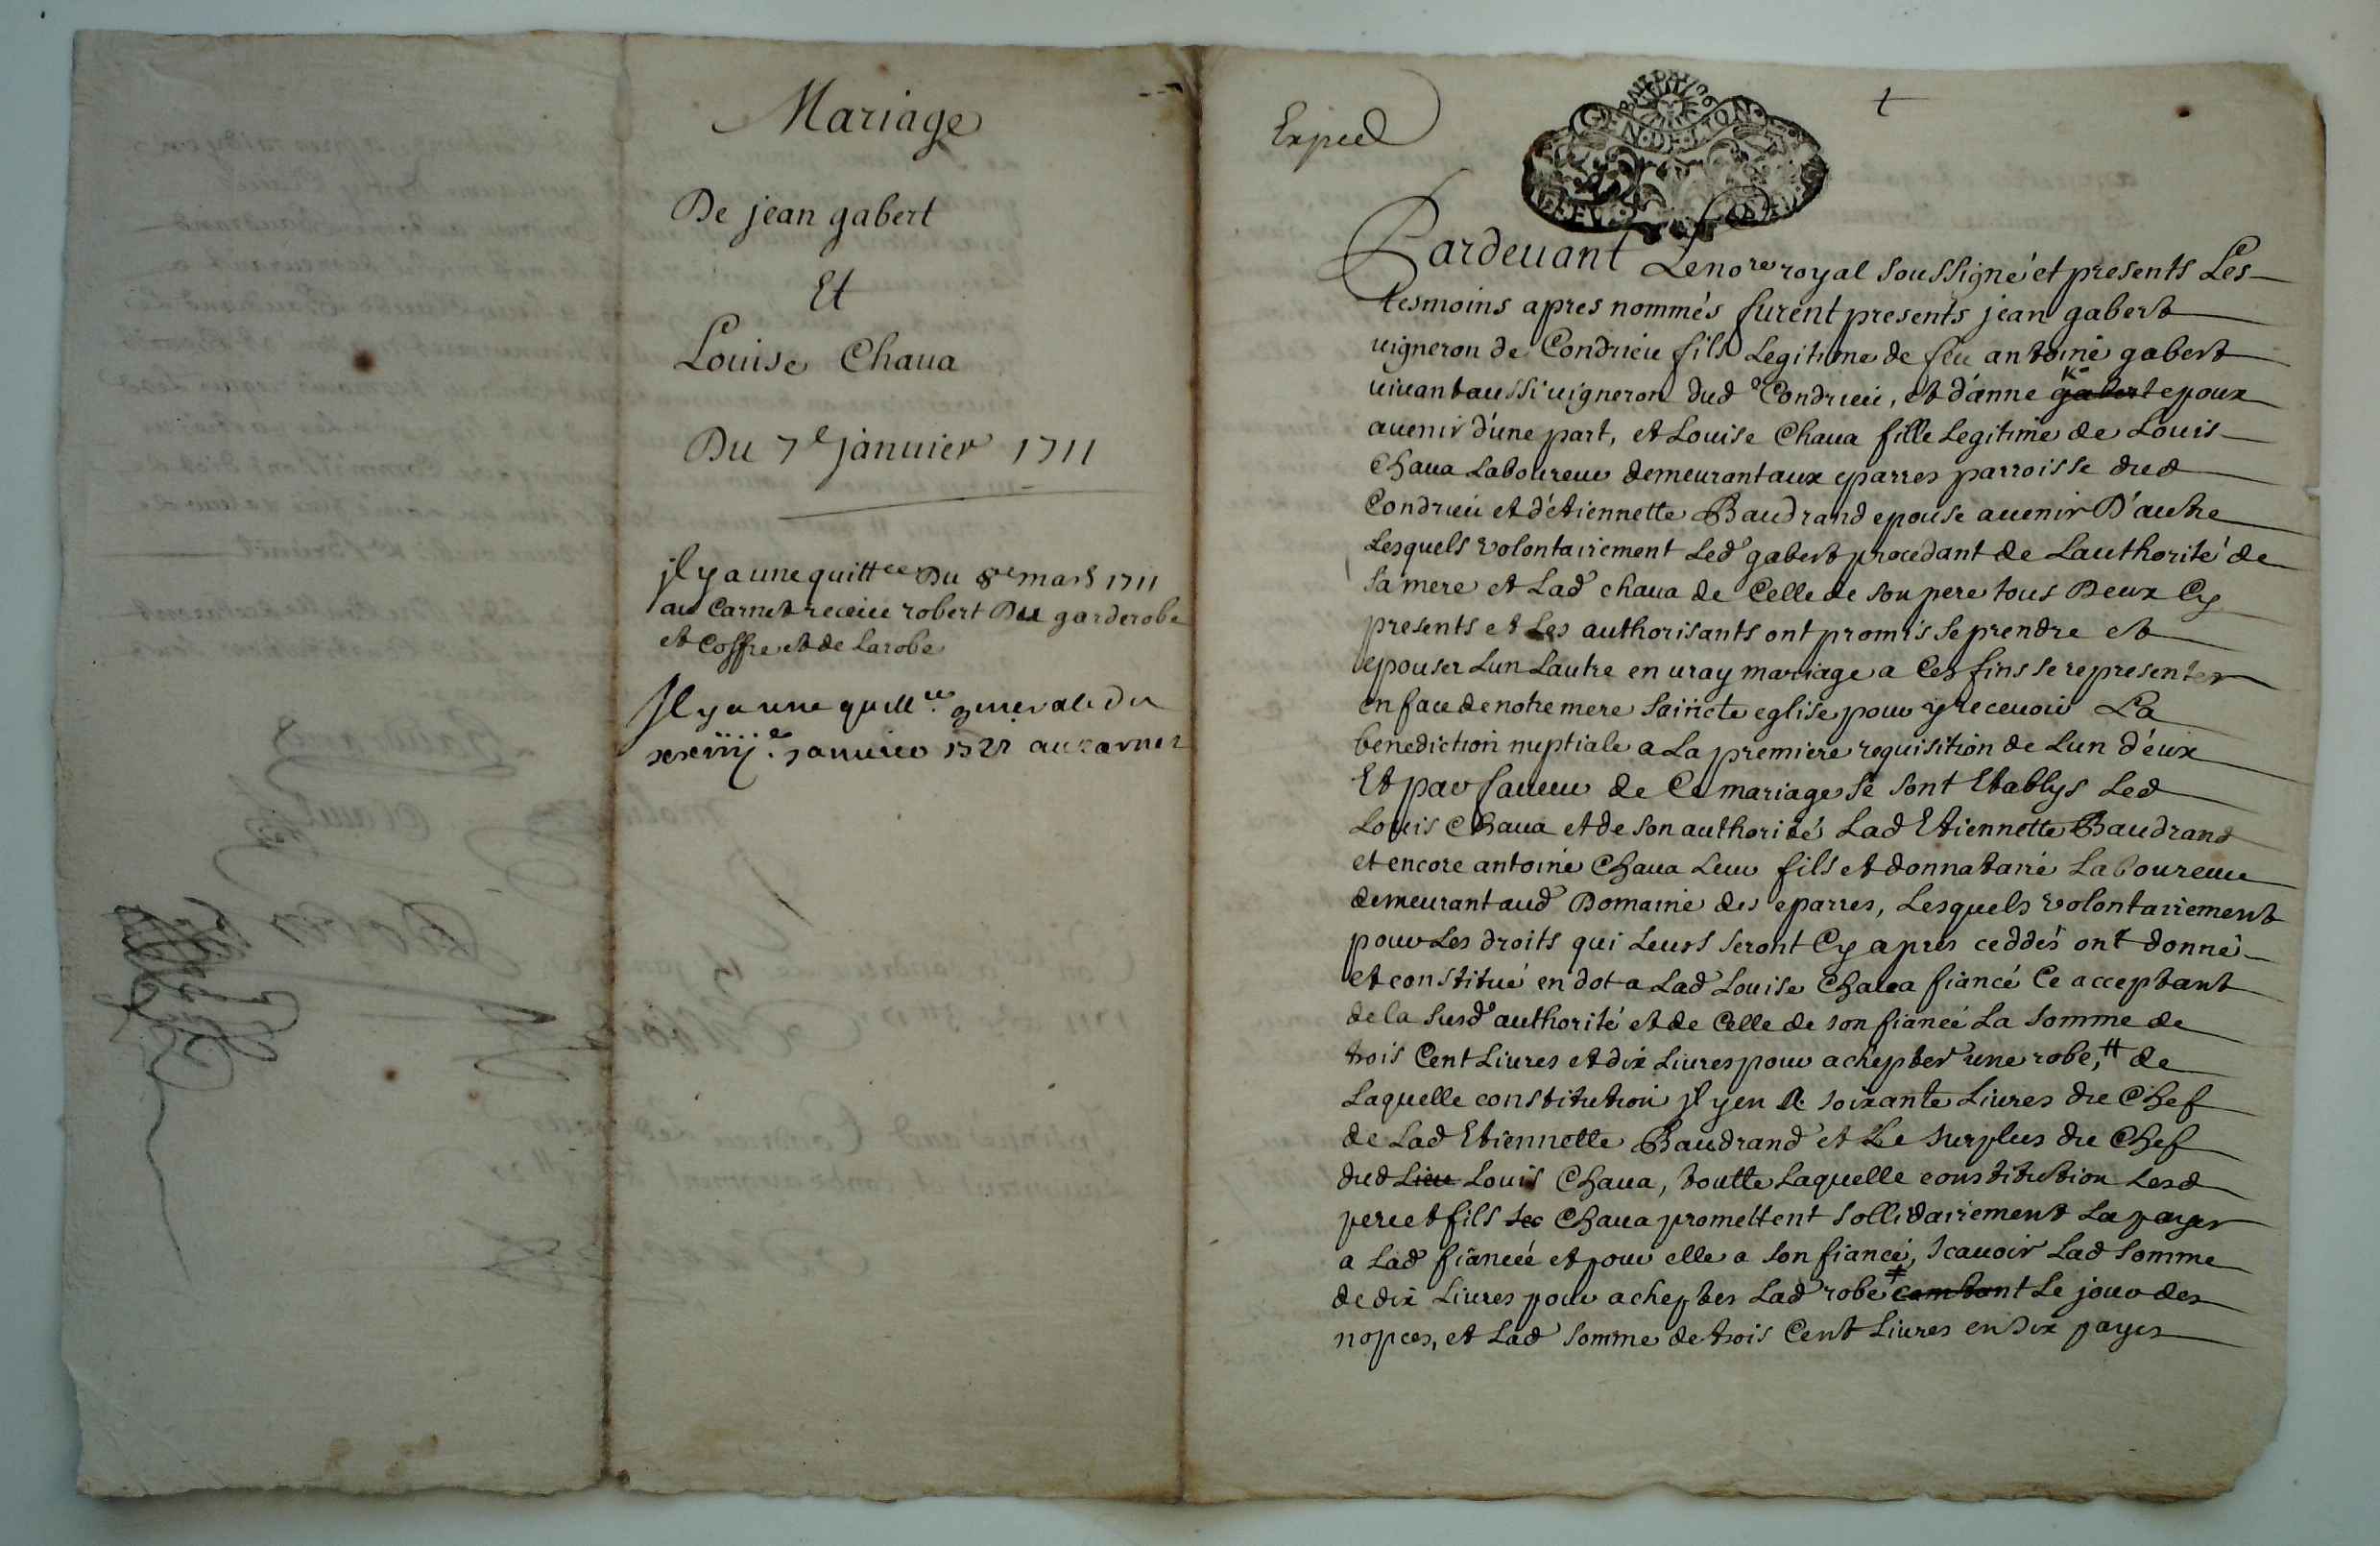 Mariage
De jean gabert
Et
Louise Chaua
Du 7e januier 1711
jl y a une quittce Du 8e mars 1711
au Carnet receue robert Du garderobe
et Coffre et de La robe
Jl y a une quittce generale du
xxiiije januier au carnet
Exped
GEN DE LION
Pardeuant Le nore royal soussigné et presents Les
tesmoins apres nommés furent presents jean gabert
uigneron de Condrieu fils Legitime de feu antoine gabert
uiuant aussi uigneron dud Condrieu, et d'anne gabert epoux
auenir d'une part, et Louise Chaua fille Legitime de Louis
Chaua Laboureur demeurant aux eparres parroisse dud
Condrieu et d'etiennette Baudrand epouse auenir D'autre
Lesquels volontairement Led gabert procedant de Lauthorité de
sa mere et Lad chaua de Celle de son pere tous Deux Cy
presents et Les authorisants ont promis se prendre et
epouser Lun Lautre en uray mariage a Ces fins se representer
en face de notre mere saincte eglise pour y receuoir La
benediction nuptiale a La premiere requisition de Lun d'eux
Et par faueur de Ce mariage se sont Etablys Led
Louis Chaua et de son authorité Lad Etiennette Baudrand
et encore antoine Chaua Leur fils et donnataire Laboureur
demeurant aud Domaine des eparres, Lesquels volontairement
pour Les droits qui Leurs seront Cy apres ceddés ont donné
et constitué en dot a Lad Louise Chaua fiancé Ce acceptant
de la susd authorité et de Celle de son fiancé La somme de
trois Cent Liures et dix Liures pour achepter une robe, # de
Laquelle constitution jl y en a soixante Liures du Chef
de Lad Etiennette Baudrand et Le surplus du Chef
dud Lieu Louis Chaua, toutte Laquelle constitution Lesd
pere et fils Chaua promettent sollidairement La payer
a Lad fiancée et pour elle a son fiancé, scauoir Lad somme
de dix Liures pour achepter Lad robe # comtant Le jour des
nopces, et Lad somme de trois Cent Liures en dix payes